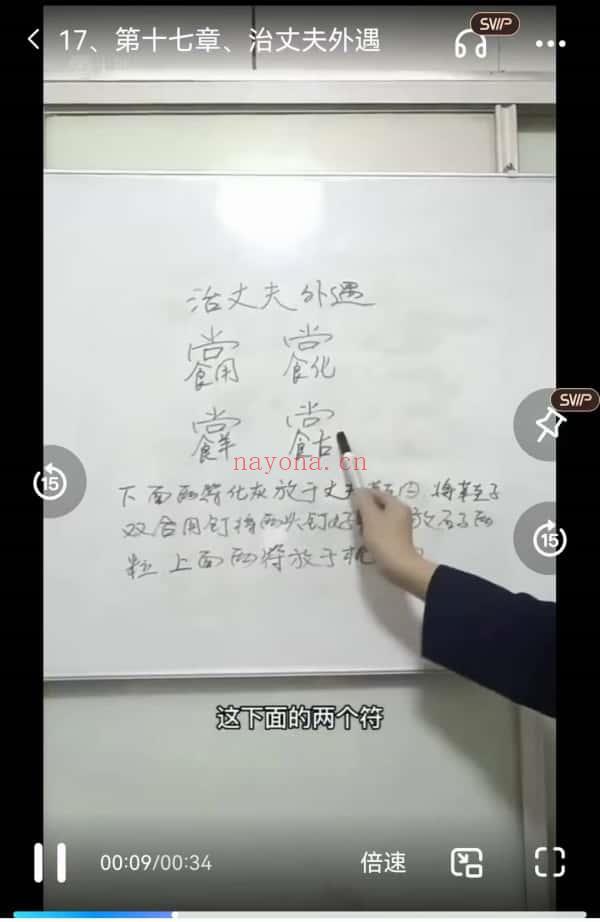 17、第十七章、治丈夫外遇
SVIP
治丈夫外遇
SVIP
nayona.cn
15
下面两符化灰放于丈夫鞋内 将鞋子
双合用钉将两头钉好 放石子两
15
粒 上面两符放于枕
这下面的两个符
00:09/00:34
倍速